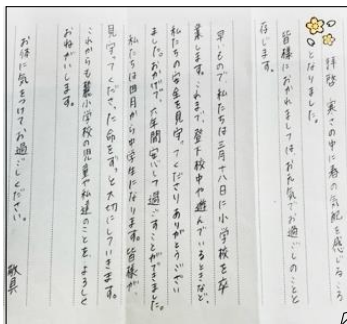 拝啓 寒さの中に春の気配を感じるころ
となりました。
皆様におかれましてはお元気でお過ごしのことと
存じます。
早いもので、私たちは三月十八日に小学校を卒
業します。これまで、登下校中や遊んでいるときなど、
私たちの安全を見守ってくださりありがとうござい
ました。おかげで、六年間安心して過ごすことができました。
私たちは四月から中学生になります。皆様が
見守ってくださった命をずっと大切にしていきます。
これからも麓小学校の児童や私達のことを、よろしく
おねがいします。
お体に気をつけてお過ごしください。
敬具